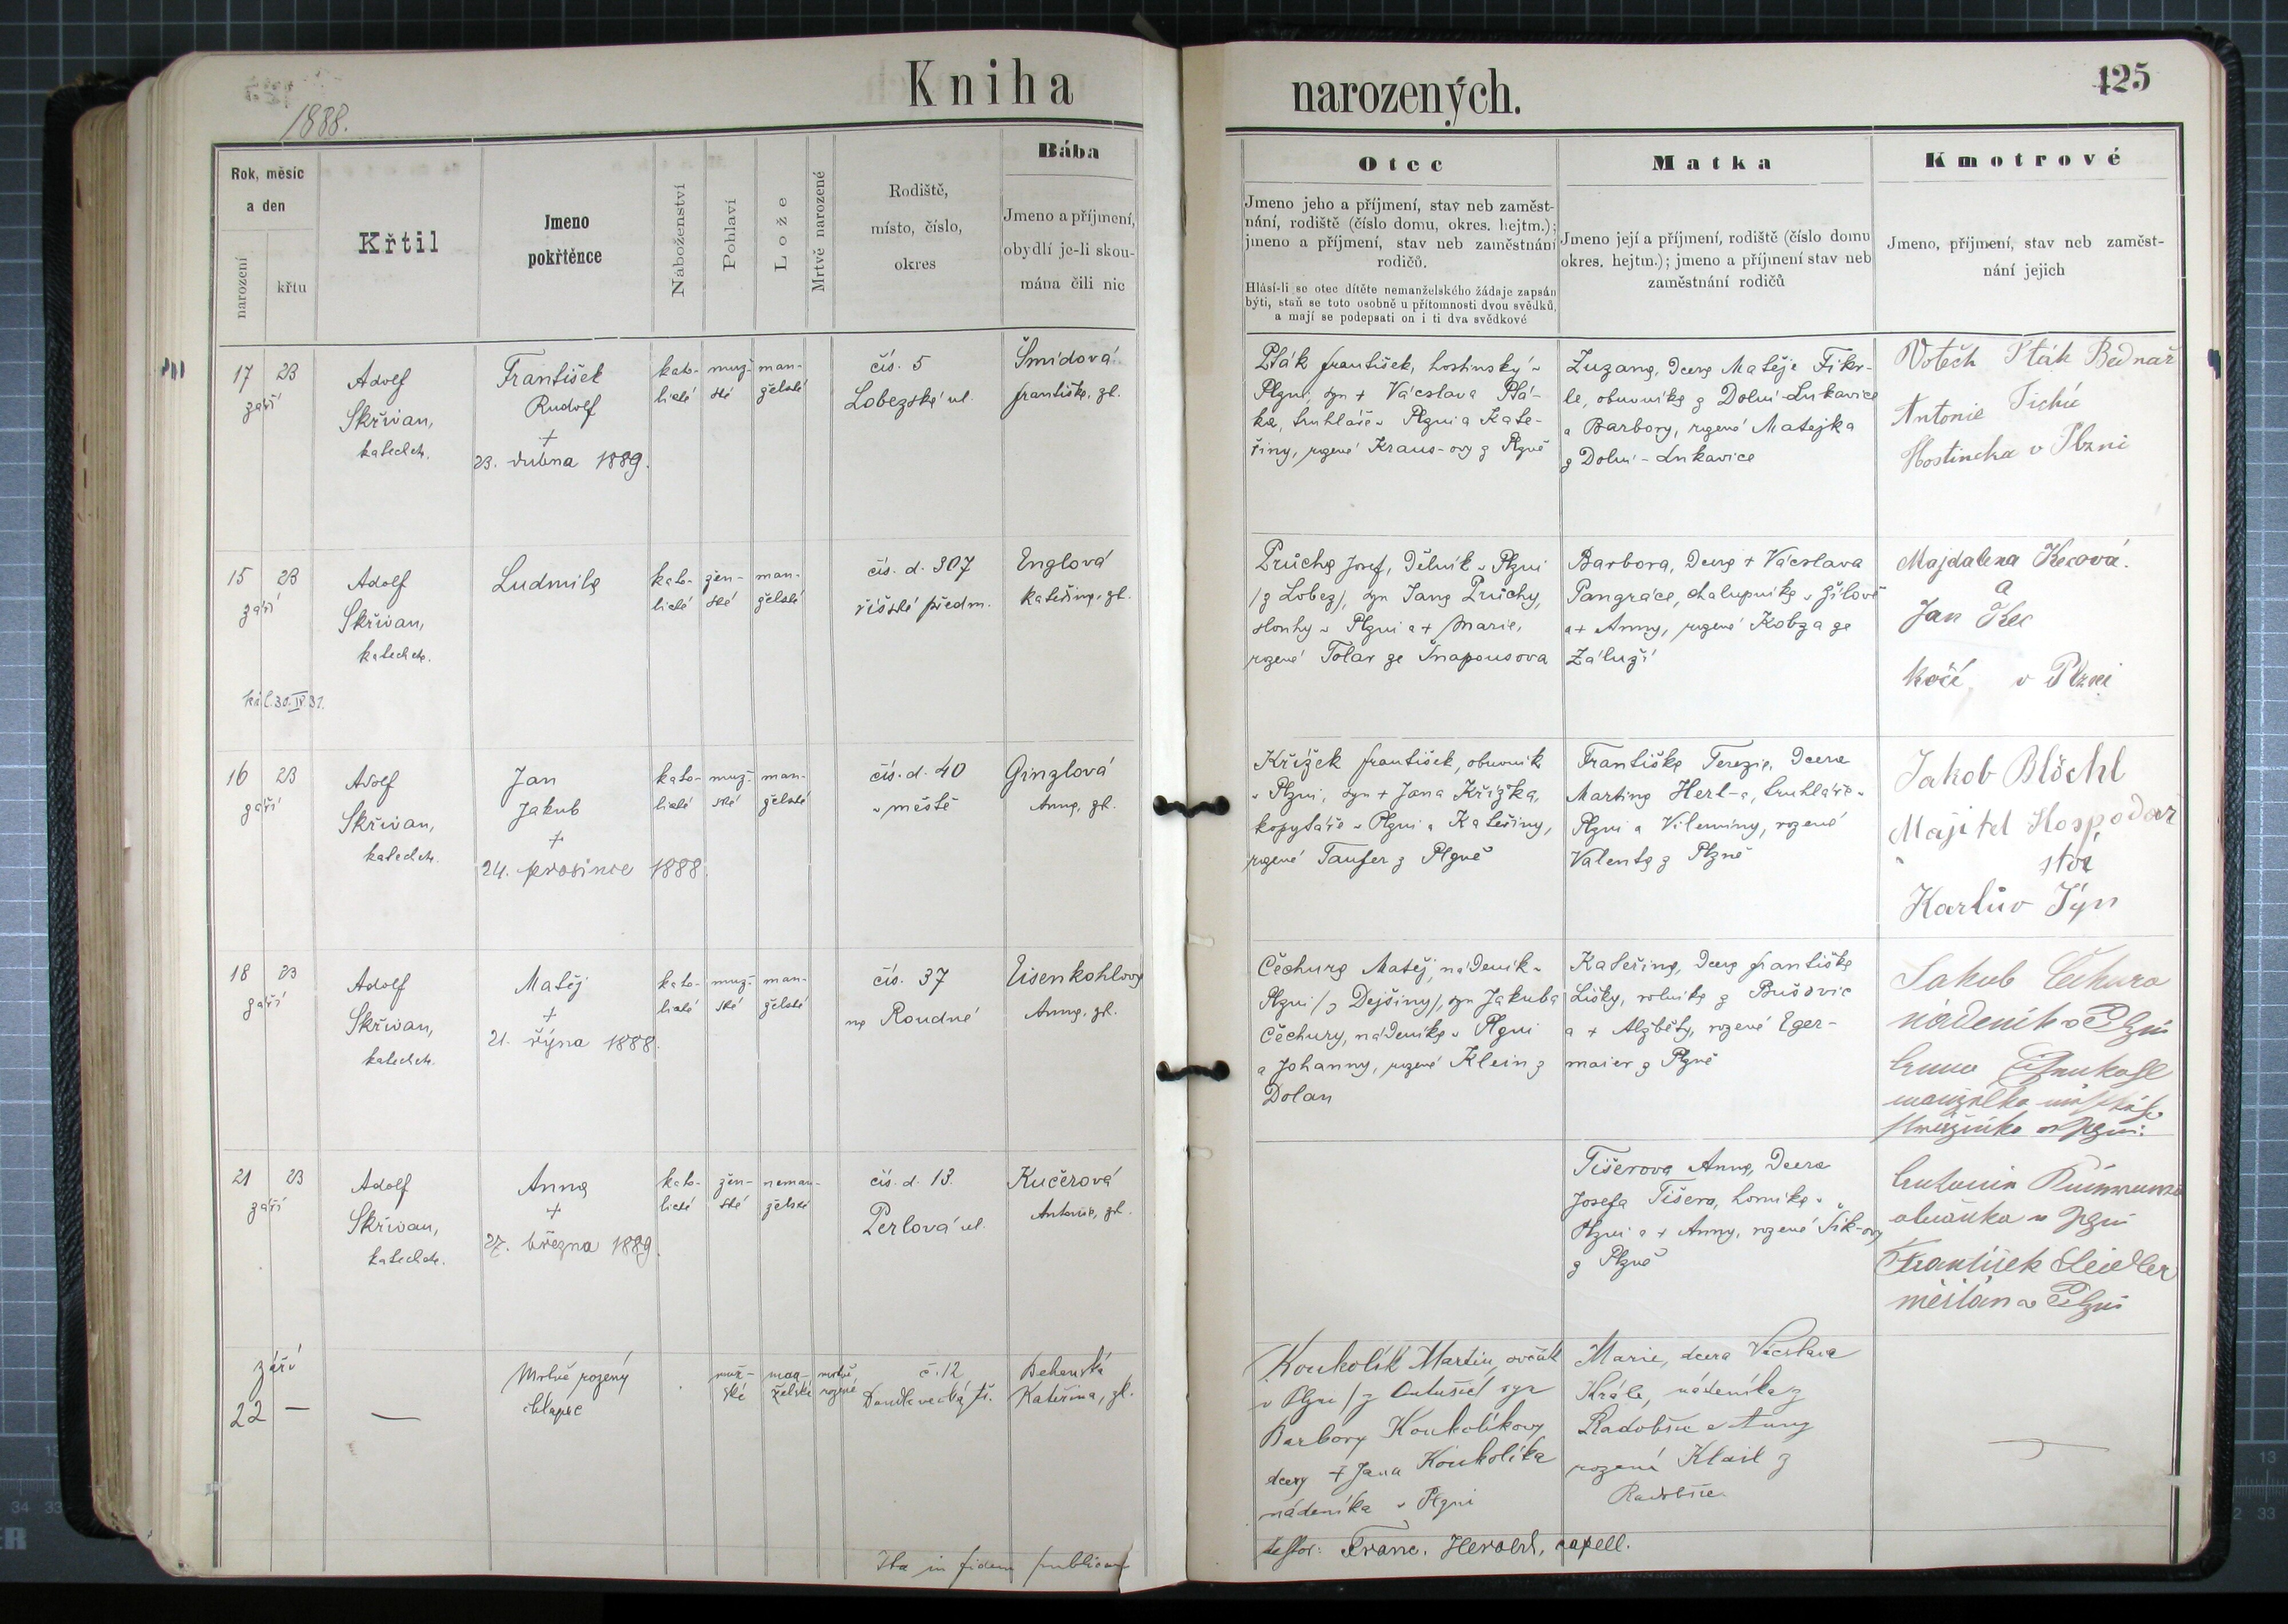 Kniha
1888.
Rok, měsíc
a den
narození
křtu
Křtil
Jmeno
pokřtěnce
Náboženství
Pohlaví
Lože
Mrtvě narozené
Rodiště,
místo, číslo,
okres
Bába
Jmeno a příjmení,
obydlí je-li skou-
mána čili nic
17 23
září
Adolf
Skřivan,
katechet.
František
Rudolf
+
23. dubna 1889.
kato-
lické
muž-
ské
man-
želské
čís. 5
Lobezské ul.
Šmídová
Františka, zk.
15 23
září
Adolf
Skřivan,
katechet.
Ludmila
kato-
lické
žen-
ské
man-
želské
čís. d. 307
říšské předm.
Englová
Kateřina, zk.
30. IV. 31.
16 23
září
Adolf
Skřivan,
katechet.
Jan
Jakub
+
24. prosince 1888.
kato-
lické
muž-
ské
man-
želské
čís. d. 40
v městě
Ginzlová
Anna, zk.
18 23
září
Adolf
Skřivan,
katechet.
Matěj
+
21. října 1888.
kato-
lické
muž-
ské
man-
želské
čís. 37
na Roudné
Eisenkohlová
Anna, zk.
21 23
září
Adolf
Skřivan,
katechet.
Anna
+
27. března 1889.
kato-
lické
žen-
ské
neman-
želské
čís. d. 13.
Perlová ul.
Kučerová
Antonie, zk.
září
22 —
—
Mrtvě rozený
chlapec
muž-
ské
man-
želské
mrtvě
rozené
č. 12
tř.
Kateřina, zk.
Ita in fidem publicam
narozených.
425
Otec
Jmeno jeho a příjmení, stav neb zaměst-
nání, rodiště (číslo domu, okres. hejtm.);
jmeno a příjmení, stav neb zaměstnání
rodičů.
Hlásí-li se otec dítěte nemanželského žádaje zapsán
býti, staň se toto osobně u přítomnosti dvou svědků,
a mají se podepsati on i ti dva svědkové
Matka
Jmeno její a příjmení, rodiště (číslo domu
okres. hejtm.); jmeno a příjmení stav neb
zaměstnání rodičů
Kmotrové
Jmeno, příjmení, stav neb zaměst-
nání jejich
Pták František, hostinský v
Plzni, syn + Václava Ptá-
ka, truhláře v Plzni a Kate-
řiny, rozené Kraus-ovy z Plzně
Zuzana, dcera Matěje Fikr-
le, obuvníka z Dolní-Lukavice
a Barbory, rozené Matejka
z Dolní-Lukavice
Votěch Pták Bednař
Antonie Tichú
Hostincka v Plzni
Průcha Josef, dělník v Plzni
(z Lobez), syn Jana Průchy,
slouhy v Plzni a + Marie,
rozené Tolar ze Šnapousova
Barbora, dcera + Václava
Pangráce, chalupníka v Žilově
a + Anny, rozené Kobza ze
Záluží
Majdalena Kecová.
a
Jan Kec
kočí v Plzni
Křížek František, obuvník
v Plzni, syn + Jana Křížka,
kopytáře v Plzni a Kateřiny,
rozené Taufer z Plzně
Františka Terezie, dcera
Martina Herl-a, truhláře v
Plzni a Vilemíny, rozené
Valenta z Plzně
Jakob Blöchl
Majitel Hospodář
ství
Karlův Týn
Čechura Matěj, nádeník v
Plzni (z Dejšiny), syn Jakuba
Čechury, nádeníka v Plzni
a Johanny, rozené Klein z
Dolan
Kateřina, dcera Františka
Lišky, rolníka z Bušovic
a + Alžběty, rozené Eger-
maier z Plzně
Jakub Čechura
nádeník v Plzni
manželka
v Plzni.
Tišerova Anna, dcera
Josefa Tišera, horníka v
Plzni a + Anny, rozené Šik-ovy
z Plzně
Antonia
v Plzni
František Seidler
měšťan v Plzni
Koukolík Martin, ovčák
v Plzni (z syn
Barbory Koukolíkovy
dcery + Jana Koukolíka
nádeníka v Plzni
Marie, dcera Václava
Krále, nádeníka z
Radobšic a Anny
rozené z
Radobšic
Franc. Herold, capell.